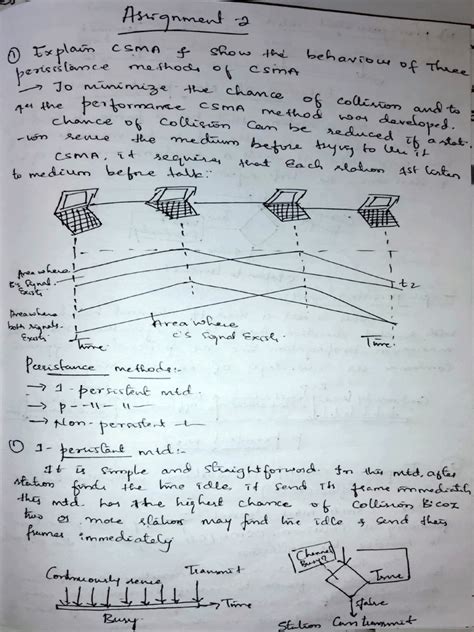 Assignment - 2
① Explain CSMA & show the behaviour of Three
persistance methods of CSMA
→ To minimize the chance of collision and to
the performance CSMA method was developed.
chance of collision can be reduced if a stat-
-ion sense the medium before trying to use it
CSMA, it requires that each station 1st listen
to medium before talk:-
Area where
B's signal
Exist
Area where
both signals
Exist
Time
Area where
C's signal Exist
t2
Time
Persistance methods:-
→ 1 - persistent mtd.
→ p - -11- 11-
→ Non - persistent -
① 1 - persistent mtd:-
It is simple and straightforward. In this mtd, after
station finds the line idle it send its frame immediately
this mtd. has the highest chance of Collision Bicoz
two or more station may find line idle & send their
frames immediately
Continuously sense
Transmit
Time
Busy
Channel
Busy?
True
false
Station Can transmit